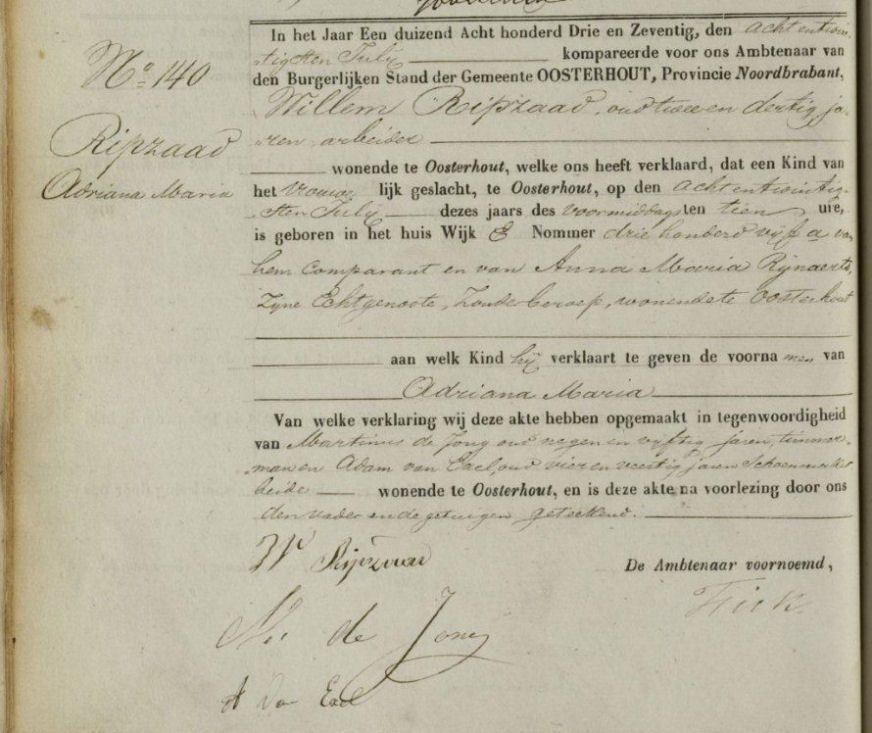 In het Jaar Een duizend Acht honderd Drie en Zeventig, den achtentwin-
tigsten July kompareerde voor ons Ambtenaar van
den Burgerlijken Stand der Gemeente OOSTERHOUT, Provincie Noordbrabant,
No 140
Willem Ripzaad, oud twee en dertig ja-
ren, arbeider
Ripzaad
Adriana Maria
wonende te Oosterhout, welke ons heeft verklaard, dat een Kind van
het vrouwe lijk geslacht, te Oosterhout, op den achtentwintig-
sten July dezes jaars des voormiddags ten tien ure,
is geboren in het huis Wijk Nommer drie honderd vijf a van
hem Comparant en van Anna Maria Rijnaerts,
Zyne Echtgenoote, Zonder beroep, wonende te Oosterhout
aan welk Kind hij verklaart te geven de voorna men van
Adriana Maria
Van welke verklaring wij deze akte hebben opgemaakt in tegenwoordigheid
van Martinus de Jong oud negen en vyftig jaren, timmer-
man en Adam van Eael oud vier en veertig jaren Schoenmaker
beide wonende te Oosterhout, en is deze akte na voorlezing door ons
den vader en de getuigen geteekend.
W Ripzaad
De Ambtenaar voornoemd,
de Jong
A Van Eael